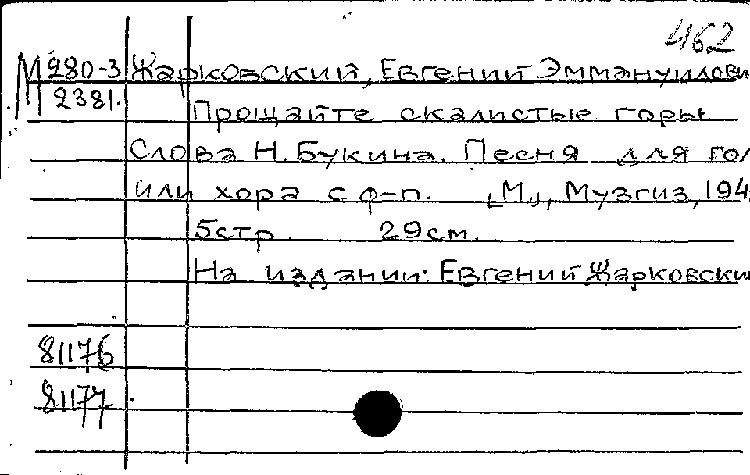 462
М 280-3 Жарковский, Евгений Эммануилови
2381.
Прощайте скалистые горы
Слова Н. Букина. Песня для го
или хора с ф-п. „М", Музгиз, 194
5 стр. 29 см.
На издании: Евгений Жарковски
81176
81177